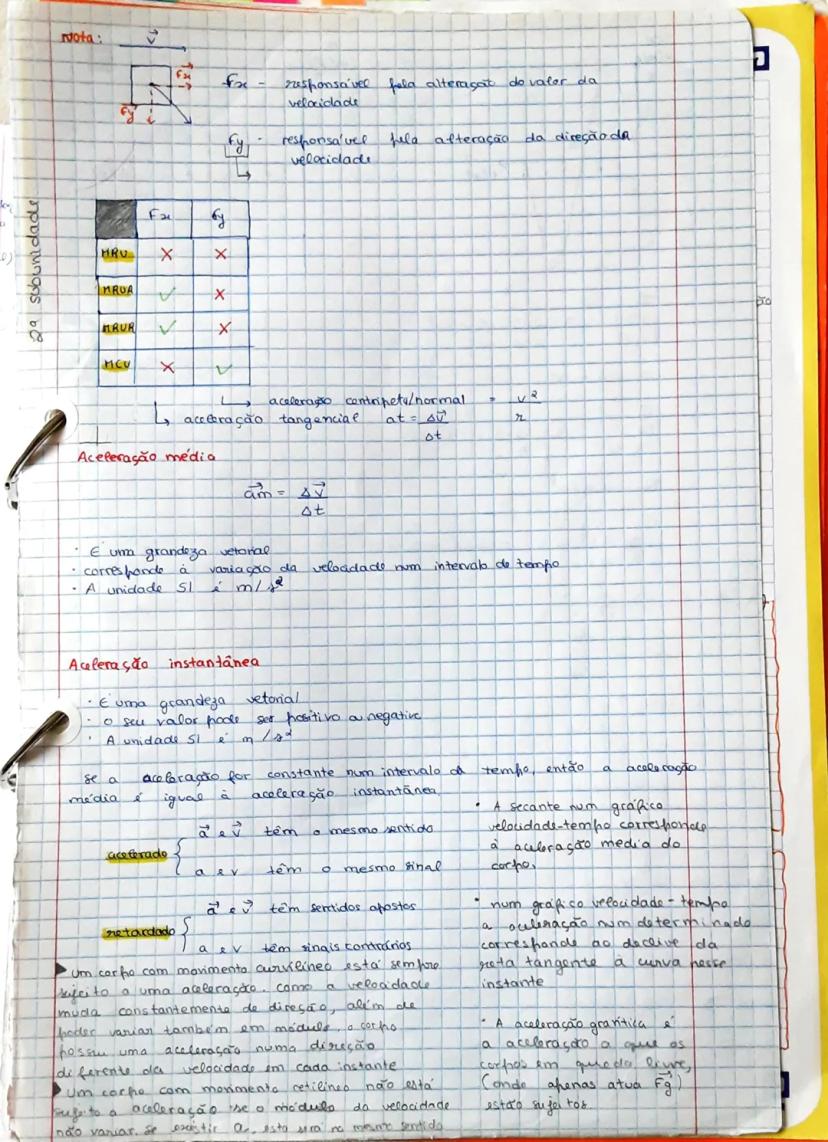 Nota:
v
Fx
Fy
Fx - responsável pela alteração do valor da
velocidade
Fy - responsável pela alteração da direção da
velocidade
2ª subunidade
Fx Fy
MRU X X
MRUA ✓ X
MRUR ✓ X
MCU X ✓
↳ aceleração centrípeta/normal = v²/r
↳ aceleração tangencial at = Δv/Δt
Aceleração média
am = Δv/Δt
· É uma grandeza vetorial
· corresponde à variação da velocidade num intervalo de tempo
· A unidade SI é m/s²
Aceleração instantânea
· É uma grandeza vetorial
· o seu valor pode ser positivo ou negativo
· A unidade SI é m/s²
se a aceleração for constante num intervalo de tempo, então a aceleração
média é igual à aceleração instantânea
acelerado
a e v têm o mesmo sentido
a e v têm o mesmo sinal
retardado
a e v têm sentidos opostos
a e v têm sinais contrários
▶ um corpo com movimento curvilíneo está sempre
sujeito a uma aceleração. como a velocidade
muda constantemente de direção, além de
poder variar também em módulo, o corpo
possui uma aceleração numa direção
diferente da velocidade em cada instante
▶ um corpo com movimento retilíneo não está
sujeito a aceleração se o módulo da velocidade
não variar. se existir a, esta será no mesmo sentido
· A secante num gráfico
velocidade-tempo corresponde
à aceleração media do
corpo.
· num gráfico velocidade - tempo
a aceleração num determinado
corresponde ao declive da
reta tangente à curva nesse
instante
· A aceleração gravítica é
a aceleração a que os
corpos em queda livre,
(onde apenas atua Fg)
estão sujeitos.